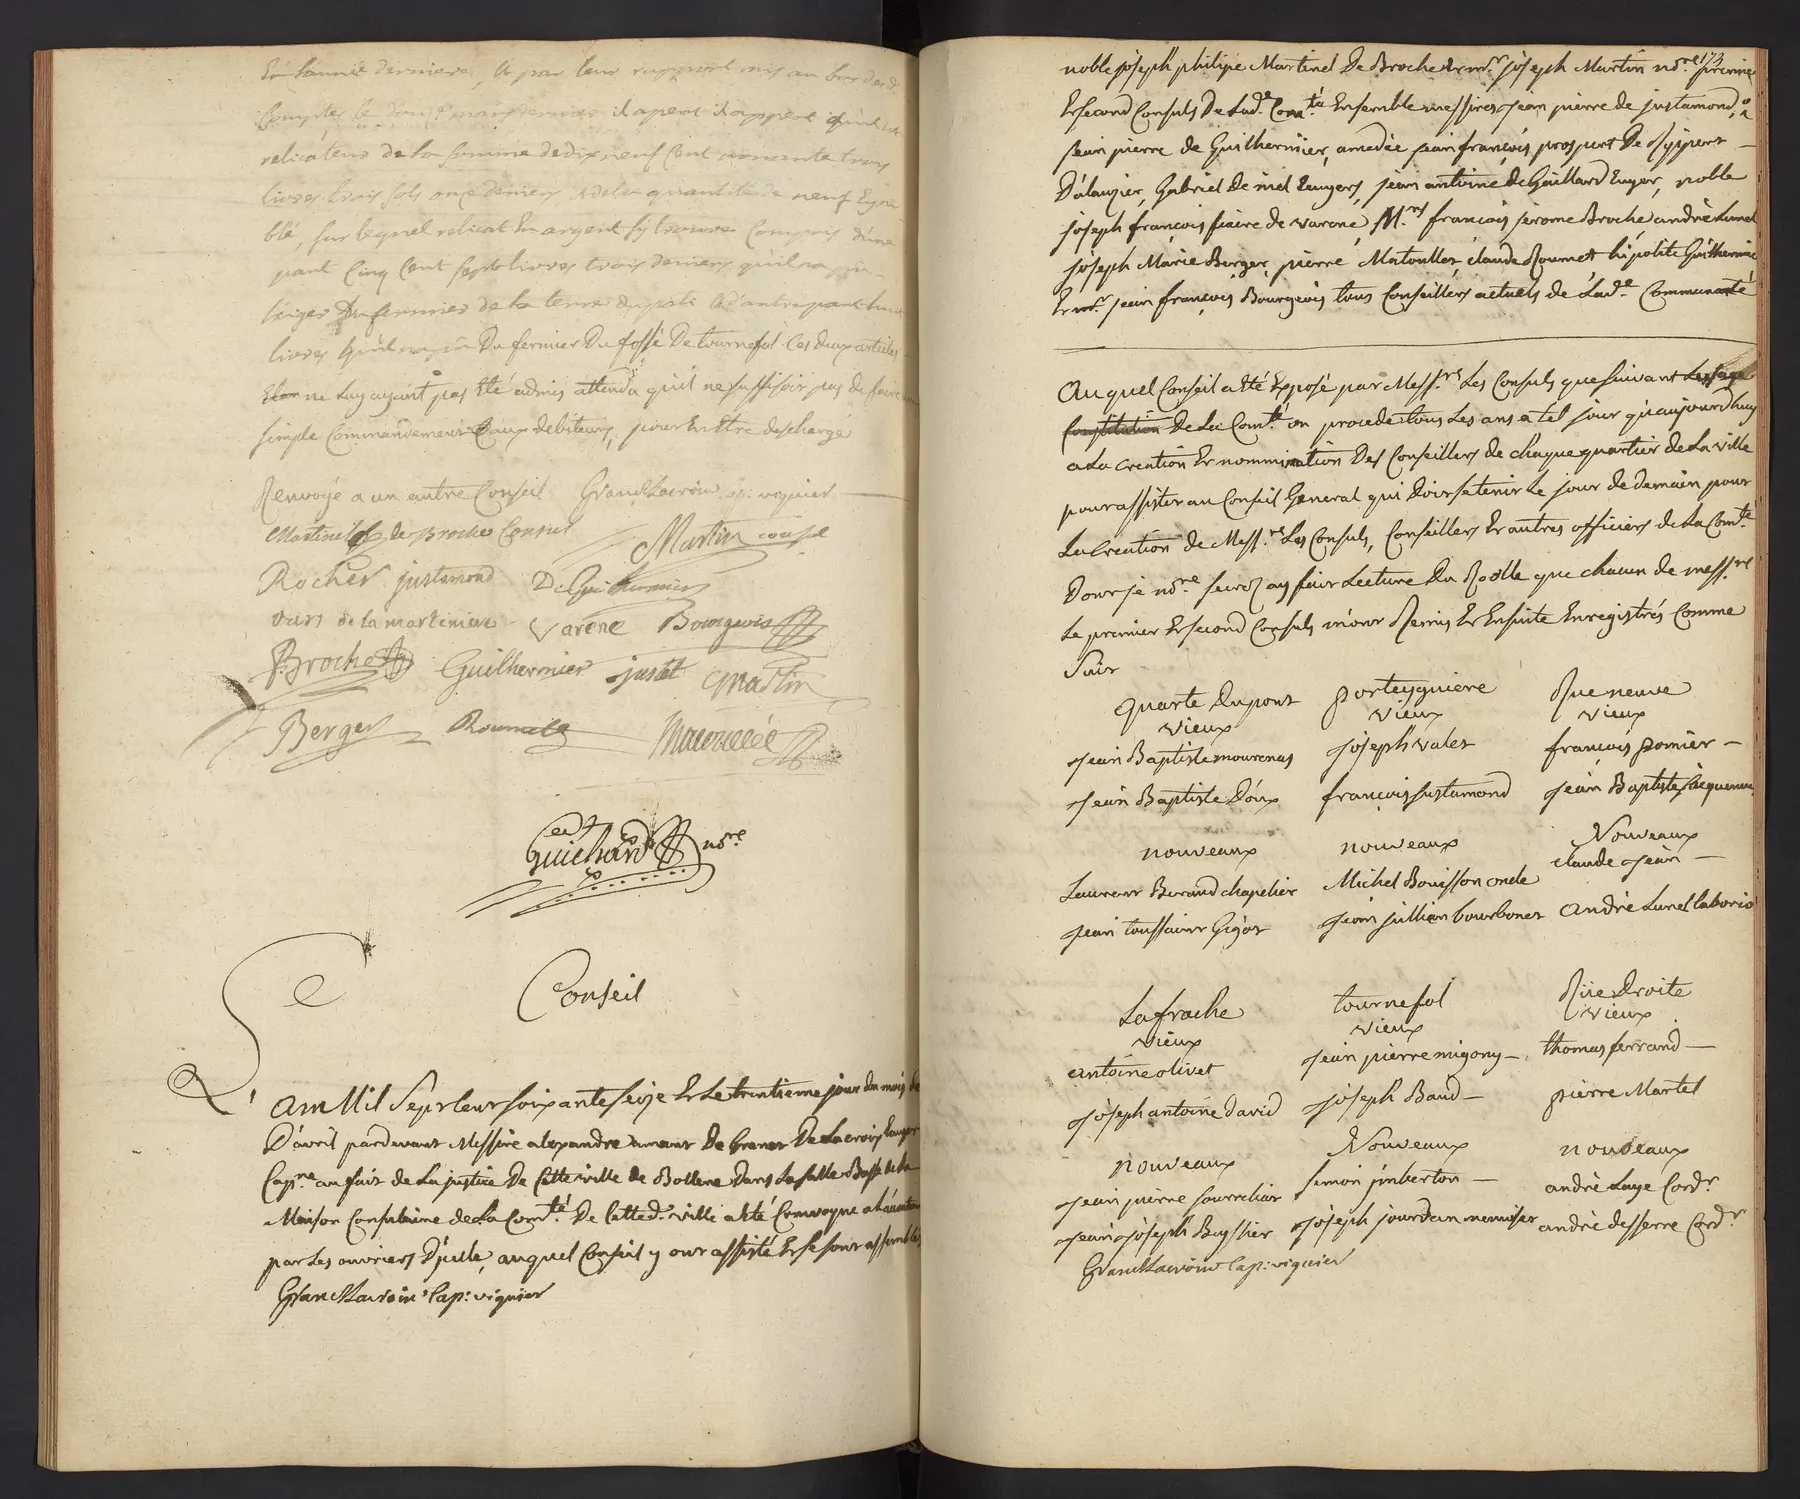 En l'année derniere, & par leur rapport mis au bas desd
Comptes le mars dernier il apert il appert quil est
relicateur de la somme de dix neuf Cent nonante trois
livres trois sols onze deniers & de la quantité de neuf
blé, sur lequel relicat En argent s'y trouve Compris d'une
part Cinq Cent sept livres trois deniers quil n'a pû
Exiger Du fermier de la terre du pati & d'autre part huit
livres quil n'a pû Du fermier Du fossé De tournefol Ces deux articles
ne luy ayant pas Eté admis attendu quil ne suffisoit pas de faire un
simple Commandement aux debiteurs, pour En Etre dechargé
Renvoyé a un autre Conseil Granet Lacroix Cap: viguier
Martinel de Broche Consul Martin consul
Rocher justamond De Guilhermier
de la martiniere varene Bourgeois
Broche Guilhermier justet Martin
Berger Roumete
Guichard nore
Conseil
L'an Mil Sept Cent soixante seize Et Le trentieme jour du mois de
D'avril pardevant Messire alexandre amant De Granet De Lacroix Ecuyer
Capne au fait de La justice De Cette ville de Bollene Dans La salle Basse de la
Maison Consulaire de La Comté. De Cette d. ville a été Convoqué
par Les ouvriers D'icelle, auquel Conseil y ont assisté Et se sont assemblés
Granet Lacroix Cap: viguier
173
noble joseph philipe Martinel De Broche Et mr. joseph Martin nore premier
Et second Consuls De Lade. Comté Ensemble messires jean pierre de justamond,
jean pierre de Guilhermier, amedée jean françois prospert De Ryppert
D'alauzier, Gabriel De niel Ecuyers, jean antoine de Gaillard Ecuyer, noble
joseph françois fiacre de varene, Mrs françois jerome Broche, andré Lunel
joseph Marie Berger, pierre Matoulles, claude Roumet hipolite Guilhermier
Et mr. jean françois Bourgeois tous Conseillers actuels de Lade. Communauté
Auquel Conseil a été Exposé par Messrs Les Consuls que suivant Lusage
Constitution De La Comté on procede tous Les ans a tel jour qu'aujourd'huy
a La creation Et nommination Des Conseillers de chaque quartier de La ville
pour assister au Conseil General qui Doit se tenir Le jour de demain pour
La Creation de Messrs Les Consuls, Conseillers Et autres officiers de La Comté
Dont je nore secre ay fait Lecture Du Roolle que chacun de messrs
Le premier Et second Consuls m'ont Remis Et Ensuite Enregistrés Comme
suit
quarte Du pont porteyguiere Rue neuve
vieux vieux vieux
jean Baptiste mourenas joseph valet françois pomier
jean Baptiste Doux françois justamond jean Baptiste
nouveaux nouveaux Nouveaux
Laurent Berand chapelier Michel Bouisson onde claude jean
jean toussaint Gigot jean jullian bourbonet andré Lunel
Lafrache tournefol Rüe Droite
vieux vieux vieux
antoine olivet jean pierre migony thomas ferrand
joseph antoine david joseph Baud pierre Martel
nouveaux Nouveaux nouveaux
jean pierre simon jmberton andré Laye Cordr
jean joseph Boyssier joseph jourdan menuisier andré desserre Cordr
Granet Lacroix Cap: viguier